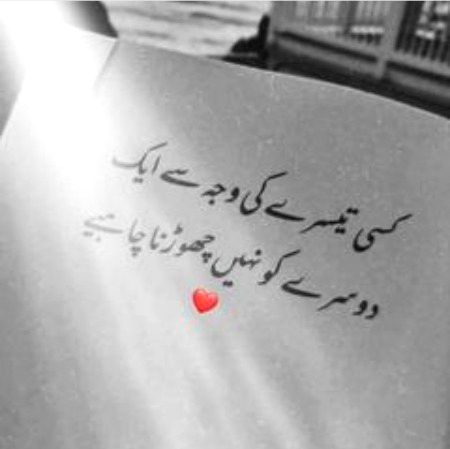 کسی تیسرے کی وجہ سے ایک
دوسرے کو نہیں چھوڑنا چاہیے